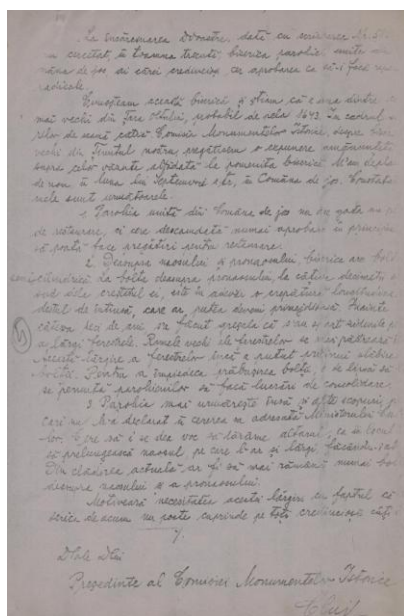 La însărcinarea Dvoastre, dată cu scrisoarea Nr.
am cercetat, în toamna trecută, biserica parohiei unite
mâna de jos, ai cărei credincioși cer aprobarea ca să-i facă repa-
rațiile.
Cunoșteam această biserică și știam că e una dintre
mai vechi din Țara Oltului, probabil de cela 1643. În cadrul
de către Comis. Monumentelor istorice, despre
vechi din Ținutul nostru, pregătisem o expunere amănunțită
asupra celor văzute la pomenita biserică. M'am depla-
de nou în luna lui Septemvrie a. tr., în Comăna de jos. Constată-
rile sunt următoarele:
1. Parohia unită din Comăna de jos nu are gata
de restaurare, ci cere deocamdată numai aprobare în principiu
să poată face pregătiri pentru restaurare.
2. Deasupra naosului și pronaosului, biserica are bolți
la bolta deasupra pronaosului, la câțiva decimetri
este în adevăr o crepătură
destul de întinsă, care ar putea deveni primejdioasă. Înainte
câteva zeci de ani, s'a făcut greșeala că s'au
a lărgi ferestrele. Ramele vechi ale ferestrelor se mai păstrează
Această lărgire a ferestrelor încă a putut pricinui slăbirea
boltei. Pentru a împiedeca prăbușirea bolții, e de dorit să
se permită parohienilor să facă lucrări de consolidare.
3. Parohia mai urmărește însă și alte scopuri, pe
cari nu le-a declarat în cererea sa adresată Ministerului
lor. E pre să i se dea voe să dărâme altarul, ca în locul
să prelungească naosul, pe care l-ar și lărgi, făcându-i
Din clădirea actuală ar fi să mai rămână numai
deasupra naosului și a pronaosului.
Motivează necesitatea acestei lărgiri cu faptul că
serica de acum nu poate cuprinde pe toți credincioșii
Dlale Dlui
Președinte al Comisiei Monumentelor Istorice